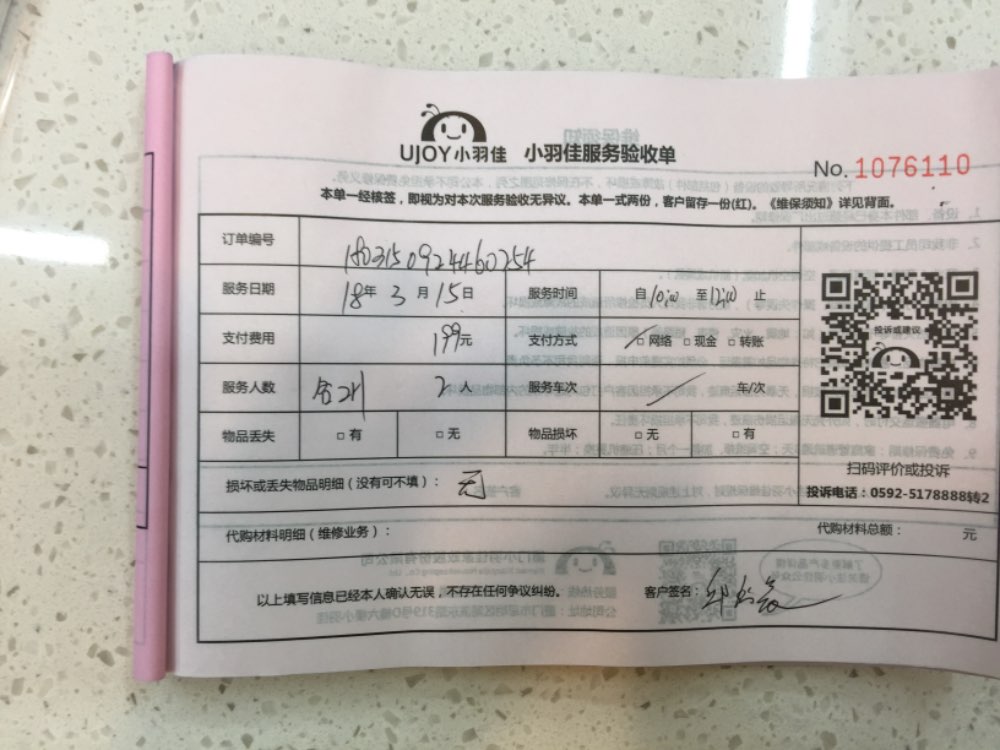 UJOY小羽佳 小羽佳服务验收单
No. 1076110
本单一经核签，即视为对本次服务验收无异议。本单一式两份，客户留存一份(红)。《维保须知》详见背面。
订单编号 1803150924460254
服务日期 18年 3月 15日 服务时间 自10:00 至12:00 止
支付费用 199元 支付方式 □网络 □现金 □转账
服务人数 2人 服务车次 / 车/次
物品丢失 □有 □无 物品损坏 □无 □有
投诉或建议
扫码评价或投诉
投诉电话：0592-5178888转2
损坏或丢失物品明细（没有可不填）： 无
代购材料明细（维修业务）： 代购材料总额： 元
以上填写信息已经本人确认无误，不存在任何争议纠纷。 客户签名：